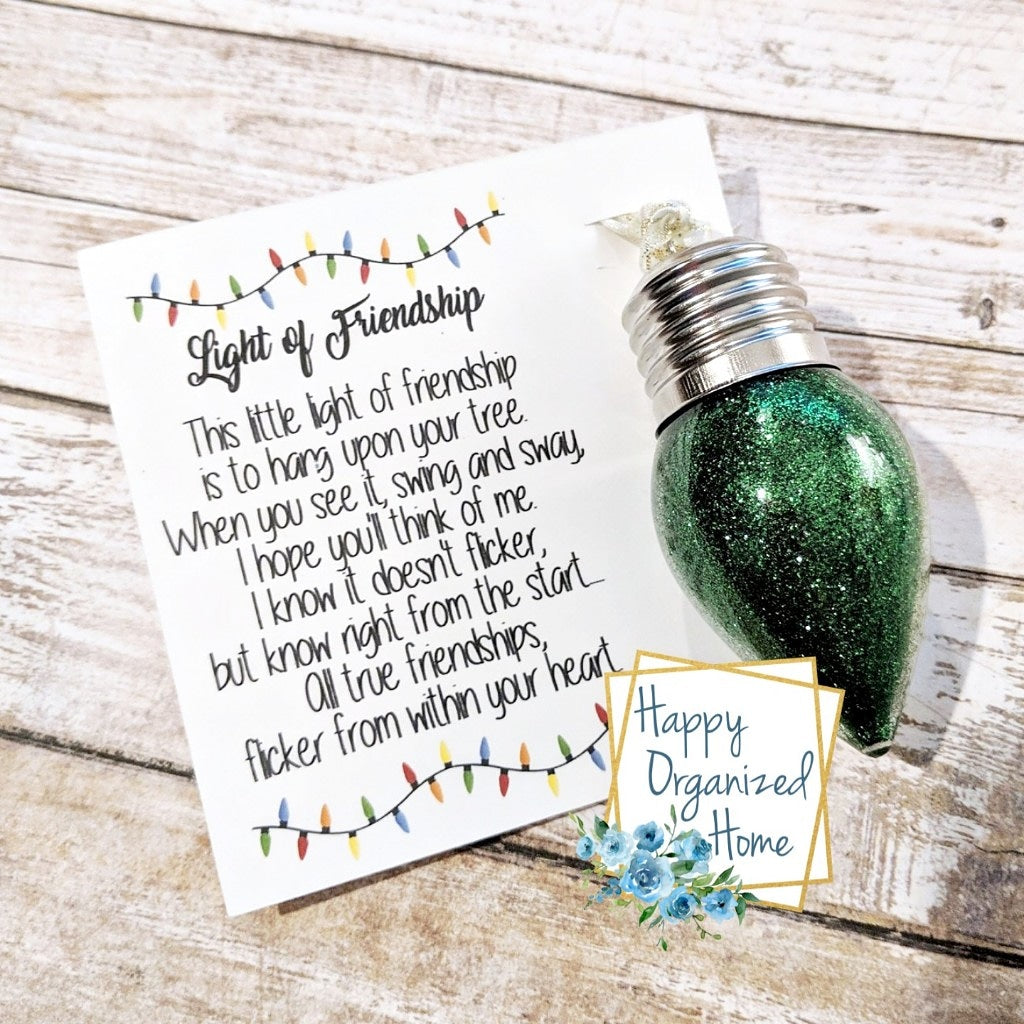 Light of Friendship
This little light of friendship
is to hang upon your tree.
When you see it, swing and sway,
I hope you'll think of me.
I know it doesn't flicker,
but know right from the start...
All true friendships,
flicker from within your heart.
Happy
Organized
Home